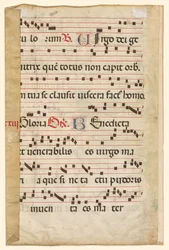 lo rum R. Virgo dei ge
nitrix que totus non capit orb.
in tua se clausit viscera fact' homo
Gloria Benedicta
et venerabilis es virgo ma
ria que si ne ta ctu pudoris
inven ta es ma ter